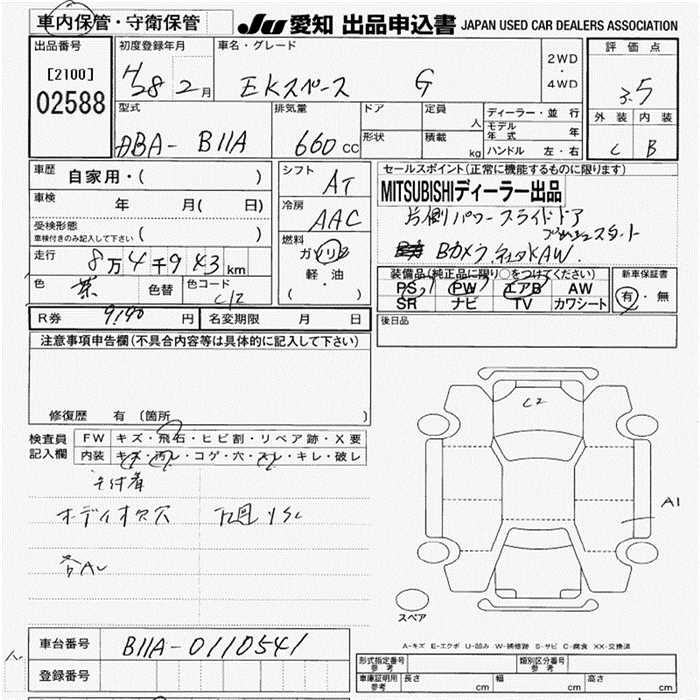 車内保管・守衛保管
JU 愛知 出品申込書 JAPAN USED CAR DEALERS ASSOCIATION
出品番号
[2100]
02588
初度登録年月
H28 2月
車名・グレード
EKスペース G
2WD
・
4WD
評価点
3.5
外装 内装
C B
型式
DBA- B11A
排気量
660 CC
ドア
形状
定員
人
積載
kg
ディーラー・並行
モデル年式 年
ハンドル 左・右
車歴
自家用・( )
車検
年 月( 日)
受検形態
車検付きのみ記入して下さい ( )
走行
8万4千943km
色
茶
色替
色コード
C12
シフト
AT
冷房
AAC
燃料
ガソリン
軽・油
( ・ )
セールスポイント(正常に機能するものに限ります)
MITSUBISHIディーラー出品
片側パワースライドドア
プッシュスタート
Bカメラ 社外AW.
装備品(純正品に限り○をつけてください)
PS PW エアB AW
SR ナビ TV カワシート
新車保証書
有・無
R券 9140 円
名変期限 月 日
後日品
注意事項申告欄(不具合内容等は具体的に記入して下さい)
修復歴 有 (箇所 )
検査員記入欄
FW キズ・飛石・ヒビ割・リペア跡・X要
内装 キズ・汚レ・コゲ・穴・スレ・キレ・破レ
オーディオ欠穴
C2
A1
スペア
A-キズ E-エクボ U-凹み W-補修跡 S-サビ C-腐食 XX-交換済
車台番号
B11A-0110541
登録番号
形式指定番号 参考
類別区分番号 参考
車庫証明用 参考
長さ cm
幅 cm
高さ cm